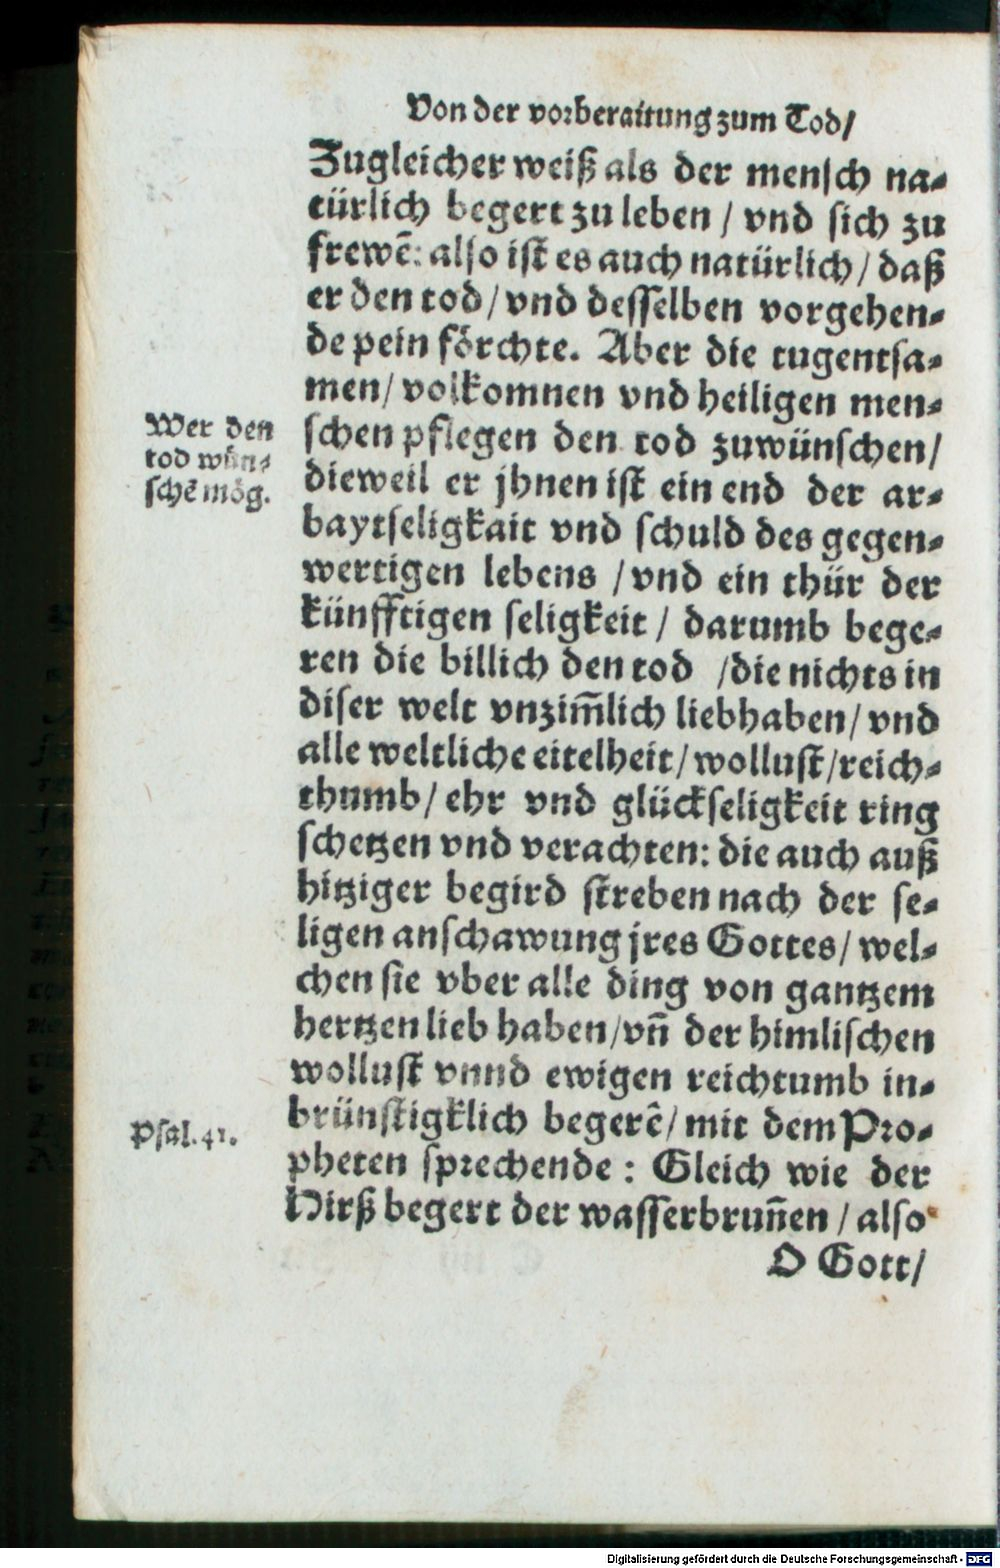 Von der vorberaitung zum Tod/
Zugleicher weiß als der mensch na-
türlich begert zu leben / vnd sich zu
frewē: also ist es auch natürlich / daß
er den tod / vnd desselben vorgehen-
de pein förchte. Aber die tugentsa-
men / volkomnen vnd heiligen men-
Wer den
tod wün-
schē mög.
schen pflegen den tod zuwünschen /
dieweil er jhnen ist ein end der ar-
baytseligkait vnd schuld des gegen-
wertigen lebens / vnd ein thür der
künfftigen seligkeit / darumb bege-
ren die billich den tod / die nichts in
diser welt vnzim̄lich liebhaben / vnd
alle weltliche eitelheit / wollust / reich-
thumb / ehr vnd glückseligkeit ring
schetzen vnd verachten: die auch auß
hitziger begird streben nach der se-
ligen anschawung jres Gottes / wel-
chen sie vber alle ding von gantzem
hertzen lieb haben / vn̄ der himlischen
wollust vnnd ewigen reichtumb in-
brünstigklich begerē / mit dem Pro-
Psal. 41.
pheten sprechende : Gleich wie der
Hirß begert der wasserbrun̄en / also
O Gott /
Digitalisierung gefördert durch die Deutsche Forschungsgemeinschaft - DFG